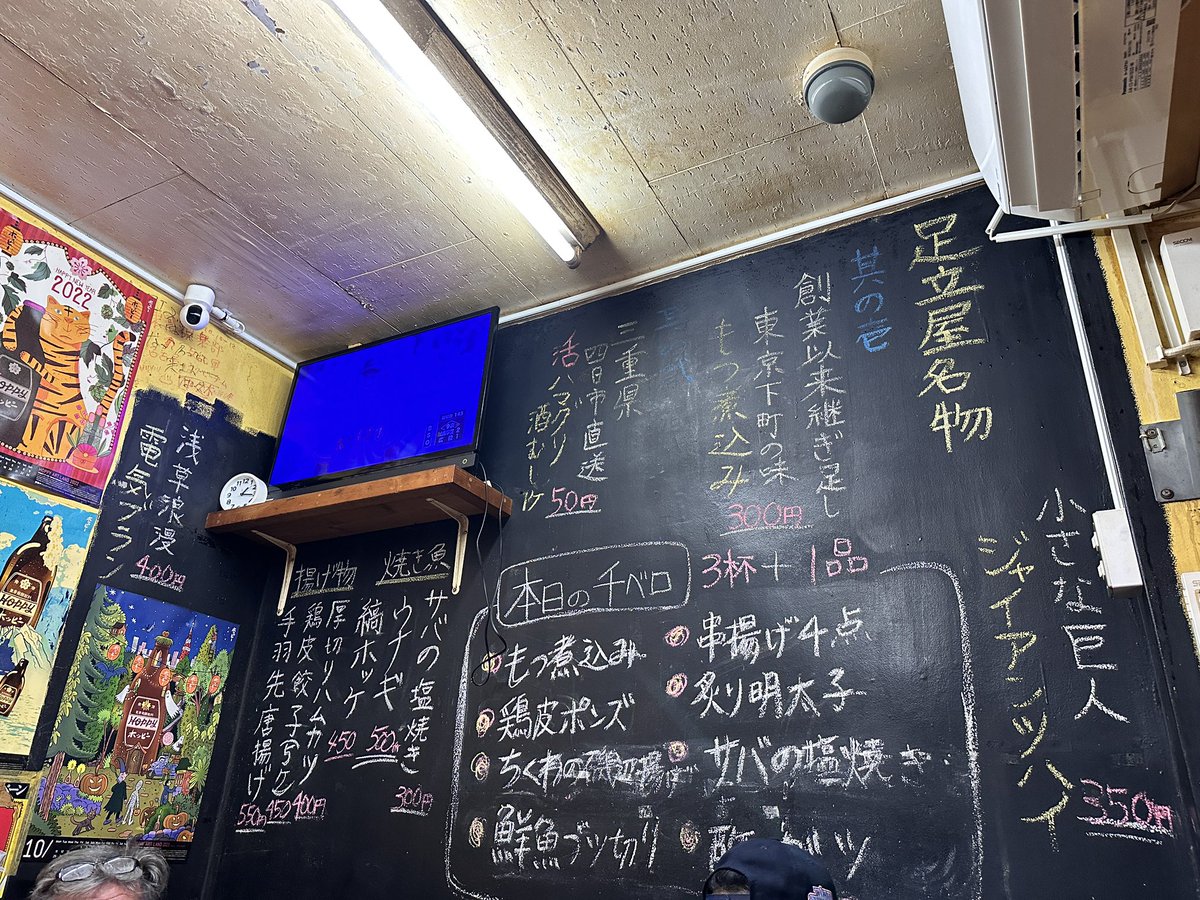 足立屋名物
其の壱
創業以来継ぎ足し
東京下町の味
もつ煮込み
300円
三重県
四日市直送
活ハマグリ
酒むし
50円
小さな巨人
ジャイアンツハイ
350円
本日のチベロ
3杯+1品
もつ煮込み
鶏皮ポンズ
ちくわの磯辺揚げ
鮮魚ブツ切り
串揚げ4点
炙り明太子
サバの塩焼き
焼き魚
サバの塩焼き
300円
ウナギ
500円
縞ホッケ
450
揚げ物
厚切りハムカツ
400円
鶏皮餃子
450
手羽先唐揚げ
550
浅草浪漫
電気ブラン
400円
HAPPY NEW YEAR
2022
HOPPY
ホッピー
HOPPY
HOPPY
ホッピー
10/